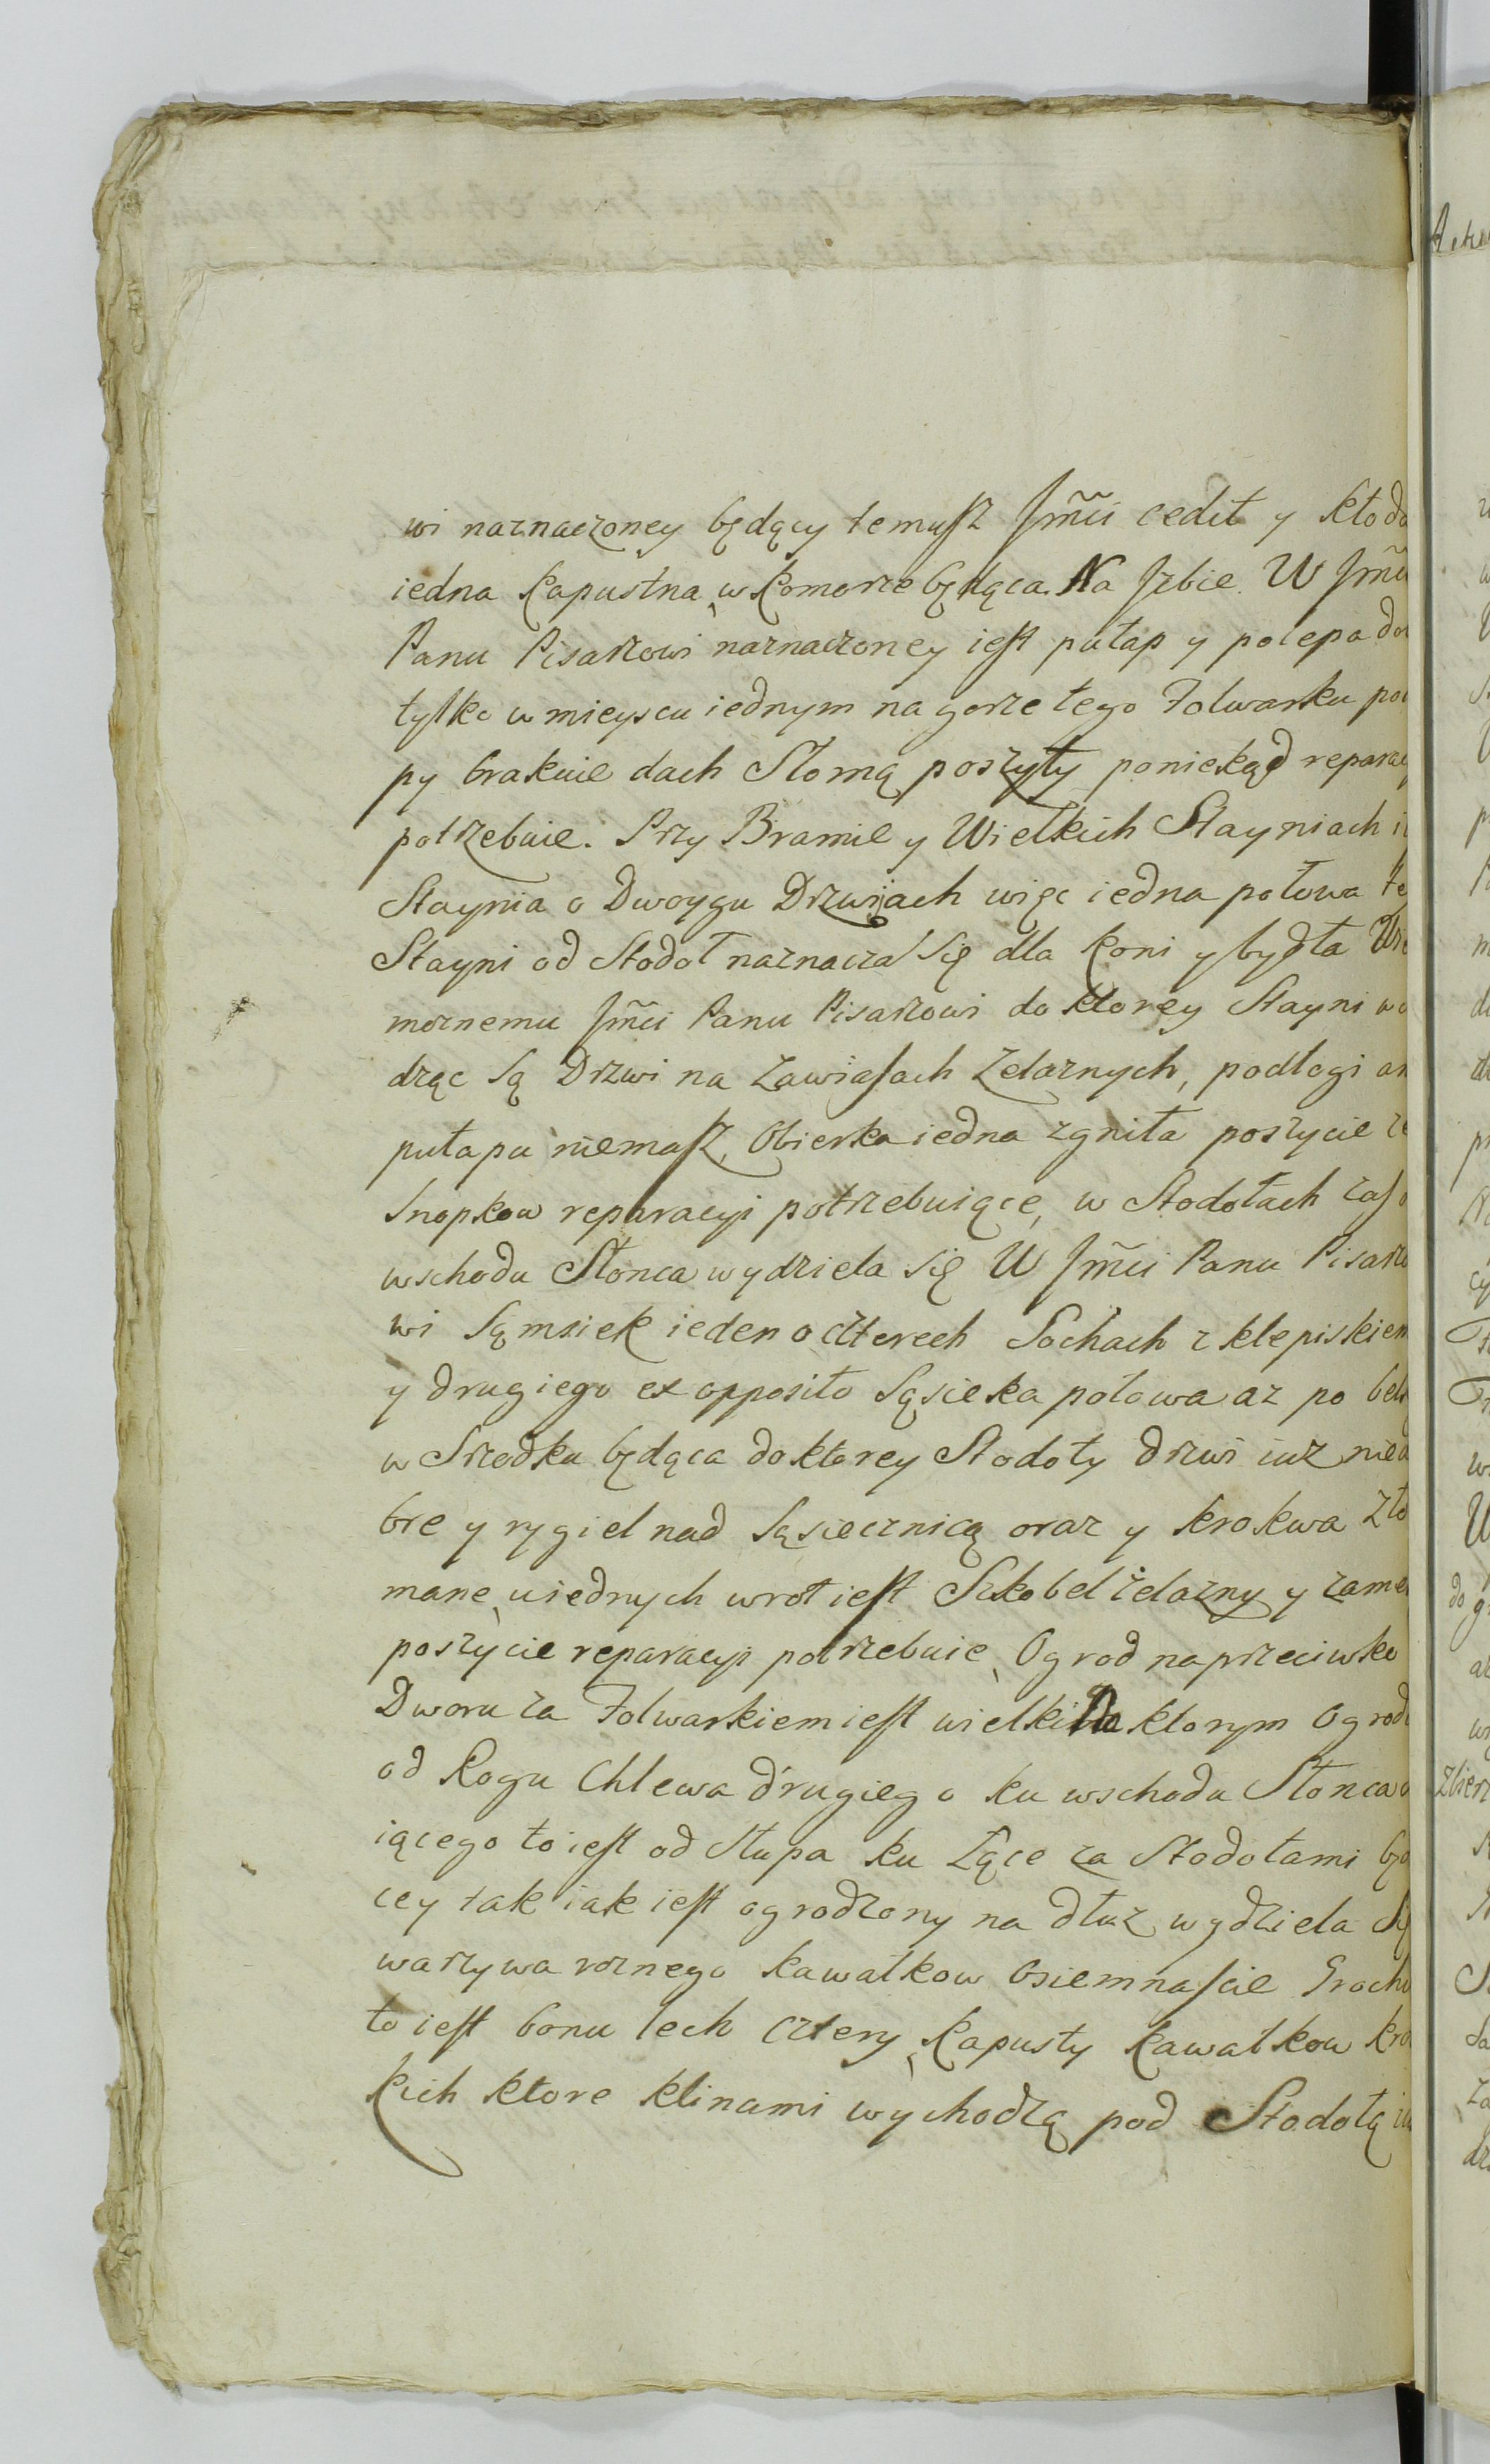 wi naznaczoney będący temuſz Jmći cedit y kłoda
iedna kapustna, w komorze będąca. Na Jzbie. W Jmći
Panu Pisarzowi naznaczoney ieſt pułap y polepa do
tylko w mieyscu iednym na gorze tego Folwarku po
py brakuie dach Słomą poszyty poniekąd reparacy
potrzebuie. Przy Bramie y Wielkich Stayniach i
Staynia o Dwoygu Drzwiach więc iedna połowa te
Stayni od Stodoł naznacza się dla koni y bydła Wie
можnemu Jmći Panu Pisarzowi do ktorey Stayni wo
dząc są Drzwi na zawiaſach żelaznych, podłogi an
pułapu niemaſz, Obierka iedna zgniła poszycie ze
Snopkow reparacyi potrzebuiące, w Stodołach zaſ o
wschodu Słonca wydziela się W Jmći Panu Pisarzo
wi Sąmsiek ieden o czterech Sochach z klepiskiem
y drugiego ex opposito Sąsieka połowa az po belk
w Srzodku będąca do ktorey Stodoły drzwi iuz niedo
bre y rygiel nad Sąsiecznicą oraz y krokwa zło
mane, u iednych wrot ieſt Szkobel żelazny y zame
poszycie reparacyi potrzebuie, Ogrod naprzeciwko
Dworu za Folwarkiem ieſt wielki Na ktorym Ogrodz
od Rogu Chlewa drugiego ku wschodu Słonca
iącego to ieſt od Słupa ku Łące za Stodołami będ
cey tak iak ieſt ogrodzony na dłuz wydziela Się
warzywa roznego kawałkow Osiemnaſcie Grochu
to ieſt bonu lech cztery, kapusty kawałkow kro
kich ktore klinami wychodzą pod Stodołą